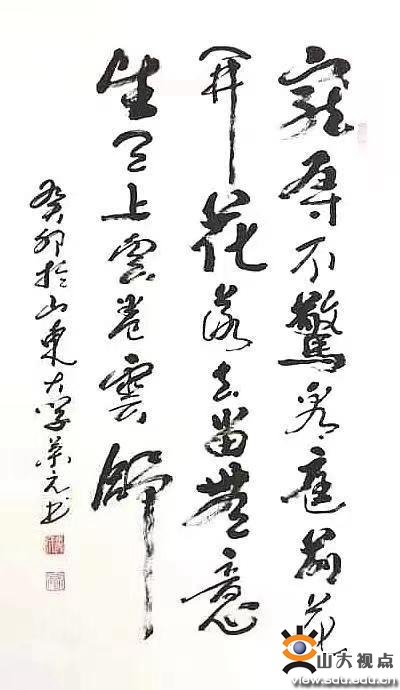 寵辱不驚看庭前花
開花落去留無意
望天上雲卷雲舒
癸卯於山東大學元书
山大视点
view.sdu.edu.cn